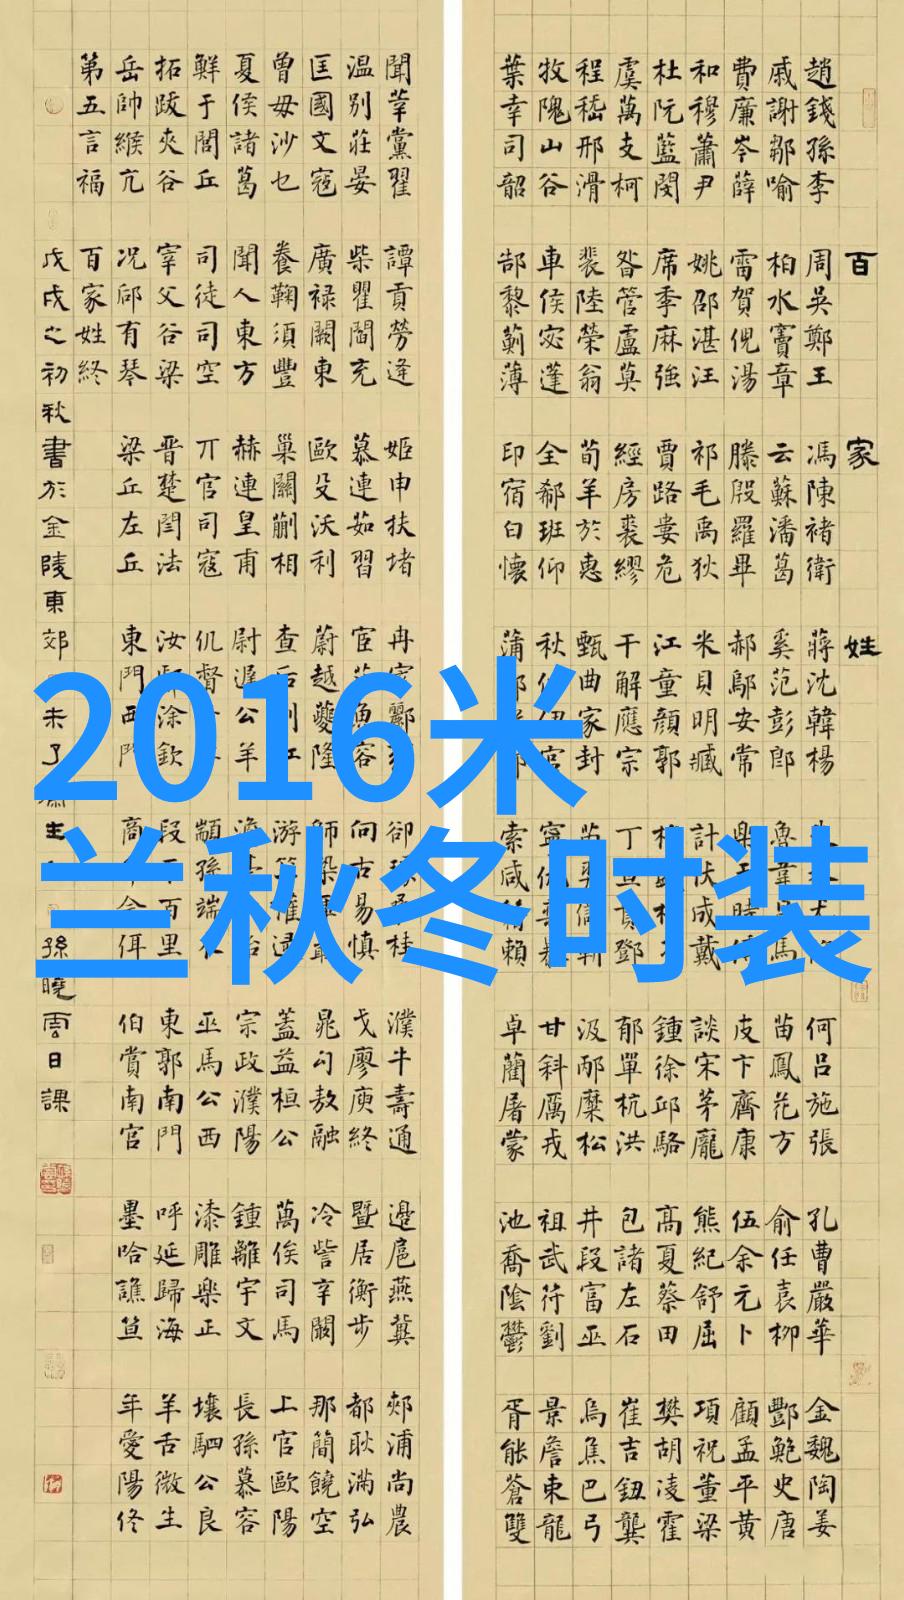 百家姓
趙錢孫李 周吳鄭王 馮陳褚衛 蔣沈韓楊 何呂施張 孔曹嚴華 金魏陶姜
戚謝鄒喻 柏水竇章 云蘇潘葛 奚范彭郎 魯韋馬 苗鳳花方 俞任袁柳 酆鮑史唐
費廉岑薛 雷賀倪湯 滕殷羅畢 郝鄔安常 樂于時傅 皮卞齊康 伍余元卜 顧孟平黃
和穆蕭尹 姚邵湛汪 祁毛禹狄 米貝明臧 計伏成戴 談宋茅龐 熊紀舒屈 項祝董梁
杜阮藍閔 席季麻強 賈路婁危 江童顏郭 林 鍾徐邱駱 高夏蔡田 樊胡凌霍
虞萬支柯 昝管盧莫 經房裘繆 干解應宗 丁宣賁鄧 郁單杭洪 包諸左石 崔吉鈕龔
程嵇邢滑 裴陸榮翁 荀羊於惠 甄曲家封 儲靳 汲邴糜松 井段富巫 烏焦巴弓
牧隗山谷 車侯宓蓬 全郗班仰 秋仲伊宮 寧仇 甘斜厲戎 祖武符劉 景詹束龍
葉幸司韶 郜黎薊薄 印宿白懷 蒲 索咸籍賴 卓藺屠蒙 池喬陰鬱 胥能蒼雙
聞莘黨翟 譚貢勞逄 姬申扶堵 冉宰酈 卻璩桑桂 濮牛壽通 邊扈燕冀 郟浦尚農
温別莊晏 柴瞿閻充 慕連茹習 宦魚容 向古易慎 戈廖庾終 暨居衡步 都耿滿弘
匡國文寇 廣祿闕東 歐殳沃利 蔚越夔隆 師鞏 晁勾敖融 冷訾辛闞 那簡饒空
曾毋沙乜 養鞠須豐 巢關蒯相 查后 游竺權逯 蓋益桓公 萬俟司馬 上官歐陽
夏侯諸葛 聞人東方 赫連皇甫 尉遲公羊 澹 宗政濮陽 鍾離宇文 長孫慕容
鮮于閭丘 司徒司空 丌官司寇 仉督 顓孫端木 巫馬公西 漆雕樂正 壤駟公良
拓跋夾谷 宰父谷梁 晉楚閆法 汝鄢涂欽 段干百里 東郭南門 呼延歸海 羊舌微生
岳帥緱亢 况郈有琴 梁丘左丘 東門西門 商佴 伯賞南宮 墨哈譙笪 年愛陽佟
第五言福 百家姓終
戊戌之初秋書於金陵東郊未了生孫曉雲日課
2016米
兰秋冬时装